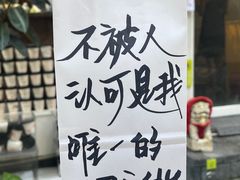 不被人
认可是我
唯一的